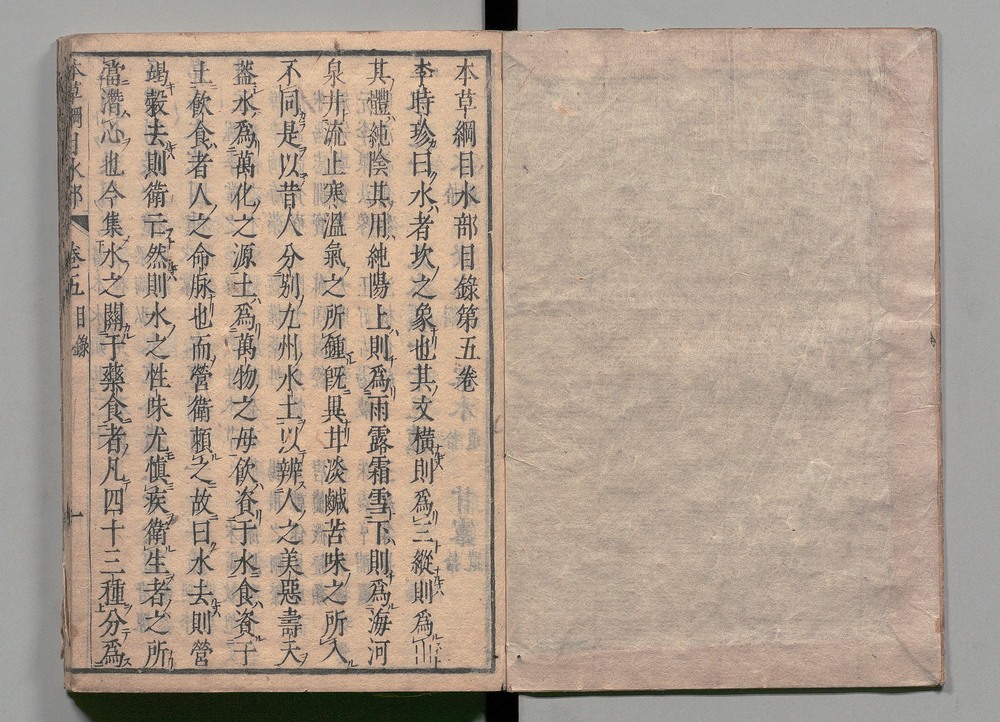 本草綱目水部目錄第五卷
李時珍曰水者坎之象也其文橫則爲三縱則爲
其體純陰其用純陽上則爲雨露霜雪下則爲海河
泉井流止寒溫氣之所鍾旣異甘淡鹹苦味之所入
不同是以昔人分別九州水土以辨人之美惡壽夭
蓋水爲萬化之源土爲萬物之母飲資于水食資于
土飲食者人之命脉也而營衛賴之故曰水去則營
竭穀去則衛亡然則水之性味尤慎疾衛生者之所
當潛心也今集水之關于藥食者凡四十三種分爲
本草綱目水部 卷五目錄 一